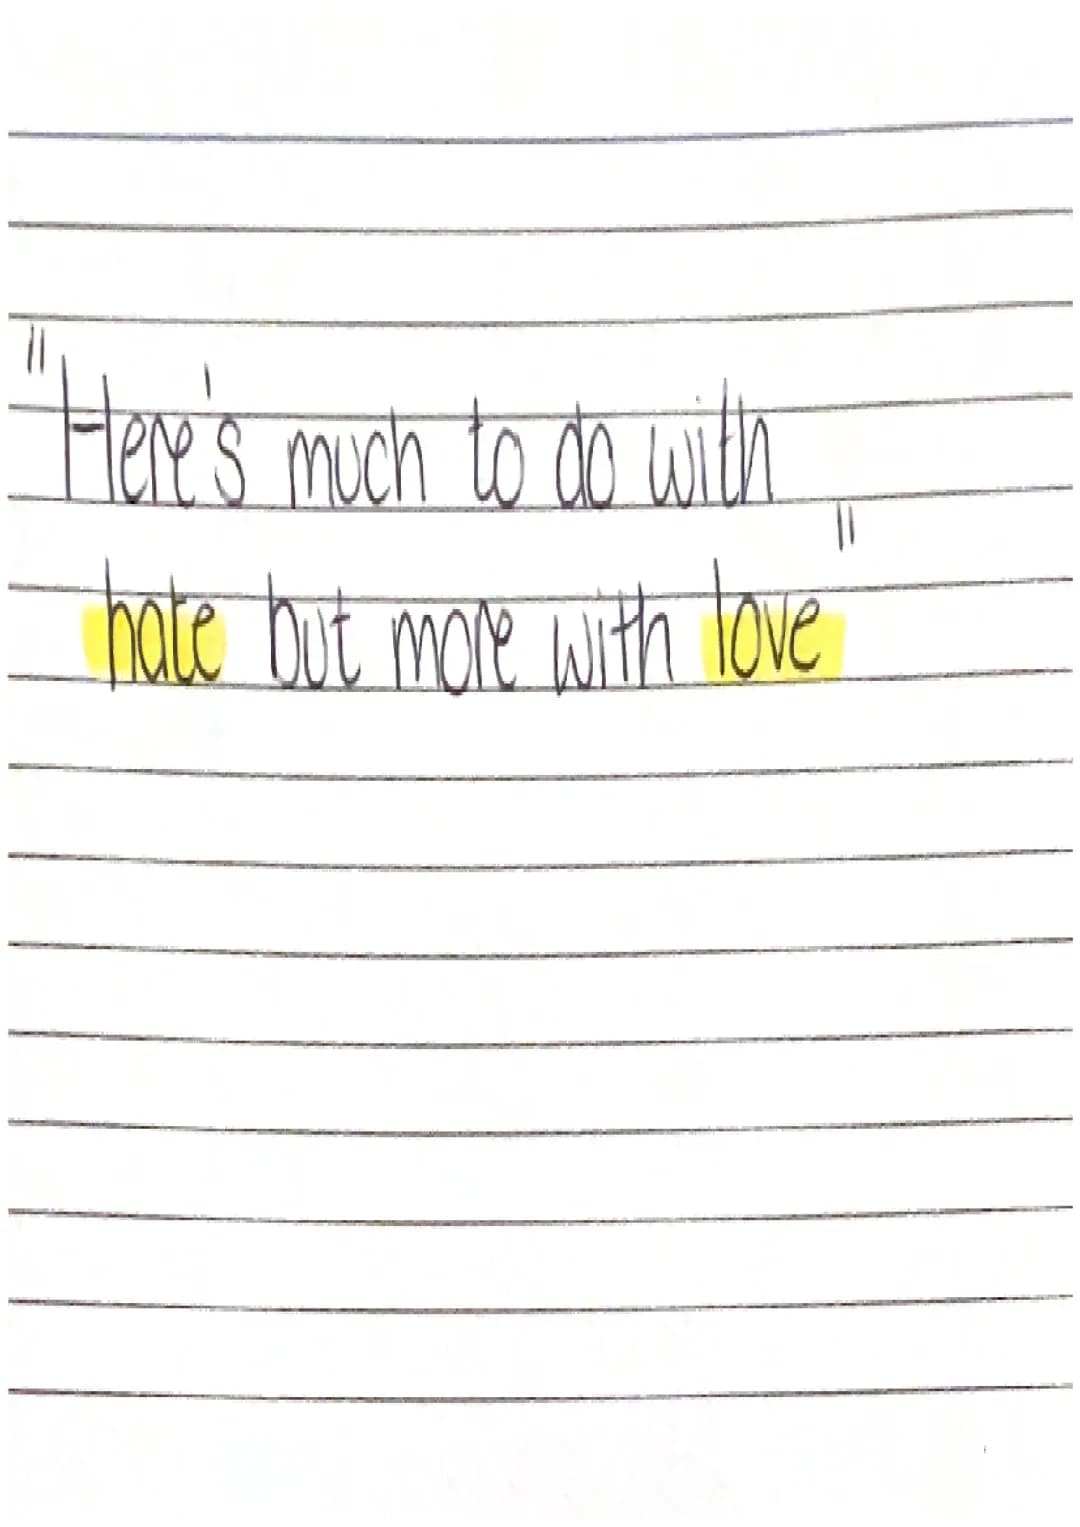 "Here's much to do with
hate but more with love"